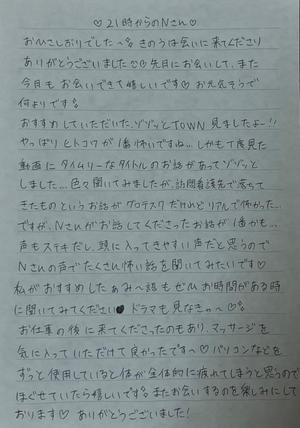 ♡21時からのNさん♡
おひさしぶりでした〜。きのうは会いに来てくださり
ありがとうございました♡先月にお会いして、また
今月もお会いできて嬉しいです♡お元気そうで
何よりです。
おすすめしていただいた、ゾゾッとTOWN見ましたよー!!
やっぱりヒトコワが1番怖いですね…しかも丁度見た
動画にタイムリーなタイトルのお話があってゾゾッと
しました…色々聞いてみましたが、訪問看護先で落ちて
きたものというお話がグロテスクだけれどリアルで怖かった…
ですが、Nさんがお話してくださったお話が1番かも…
声もステキだし、頭に入ってきやすい声だと思うので
Nさんの声でたくさん怖い話を聞いてみたいです♡
私がおすすめしたぁみ〜話もぜひお時間がある時
に聞いてみてください ドラマも見なきゃ〜♡。
お仕事の後に来てくださったのもあり、マッサージを
気に入っていただけて良かったです〜♡パソコンなどを
ずっと使用していると体が全体的に疲れてしまうと思うので
ほぐせていたら嬉しいです。またお会いするのを楽しみにして
おります♡ ありがとうございました!